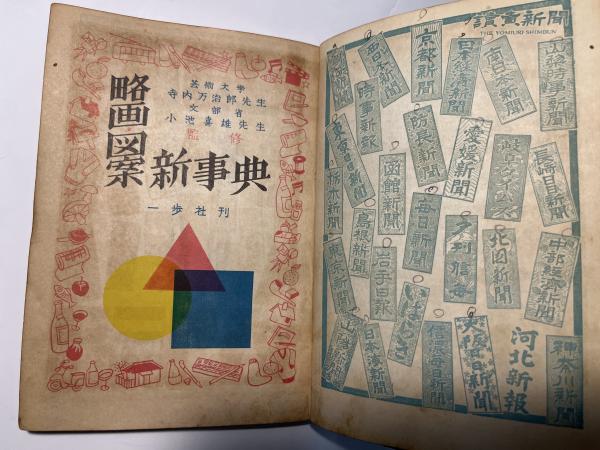 芸術大学
寺内万治郎先生
文部省
小池喜雄先生
監修
略画図案
新事典
一歩社刊
讀賣新聞
THE YOMIURI SHIMBUN
西日本新聞
京都新聞
日本経済新聞
南日本新聞
時事新報
防長新聞
愛媛新聞
長崎日日新聞
東奥日日新聞
函館新聞
毎日新聞
夕刊信毎
北国新聞
中部経済新聞
栃木新聞
島根新聞
岩手日報
いはらき
東京新聞
日本海新聞
信濃毎日新聞
大阪毎日新聞
河北新報
神奈川新聞